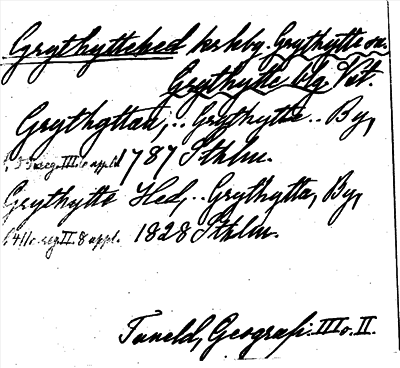 Grythyttehed kr kby. Grythytte sn.
Grythytte bg Vst.
Grythyttan, .. Grythytte .. By,
1787 Sthlm.
Grythytte Hed, .. Grythytta, By,
II. 8 uppl. 1828 Sthlm.
Tuneld, Geografi. III o. II.